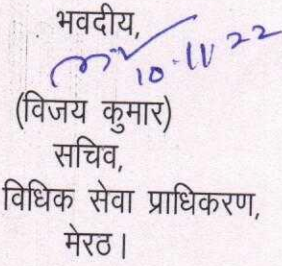 भवदीय,
10.11.22
(विजय कुमार)
सचिव,
विधिक सेवा प्राधिकरण,
मेरठ।